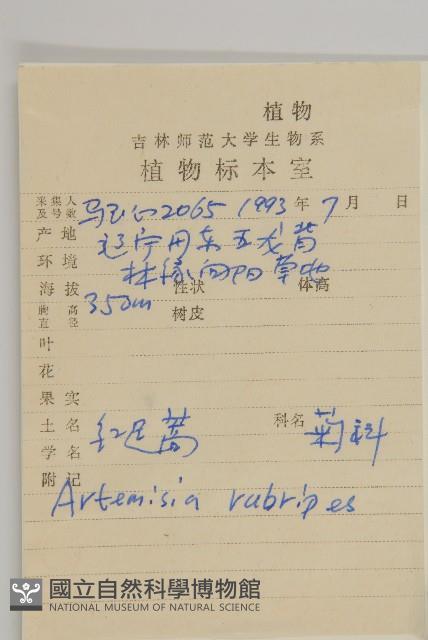 植物
吉林师范大学生物系
植物标本室
采集人及号数 2065 1993年7月 日
产地 辽宁丹东五龙背
环境 林缘向阳草地
海拔 350m 性状 体高
胸高直径 树皮
叶
花
果实
土名 红足蒿 科名 菊科
学名
附记 Artemisia rubripes
國立自然科學博物館
NATIONAL MUSEUM OF NATURAL SCIENCE